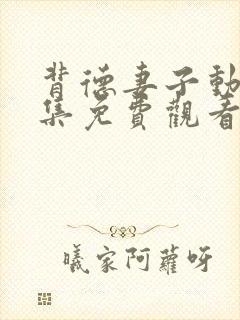 背德妻子動
集免費觀看
曦家阿蘿呀